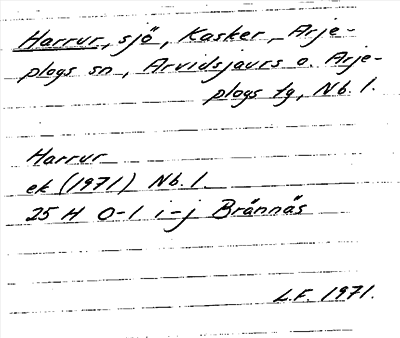 Harrur, sjö, Kasker, Arje-
plogs sn, Arvidsjaurs o. Arje-
plogs tg, Nb. l.
Harrur
ek (1971) Nb. l.
25 H 0-1 i-j Brännäs
L.F. 1971.